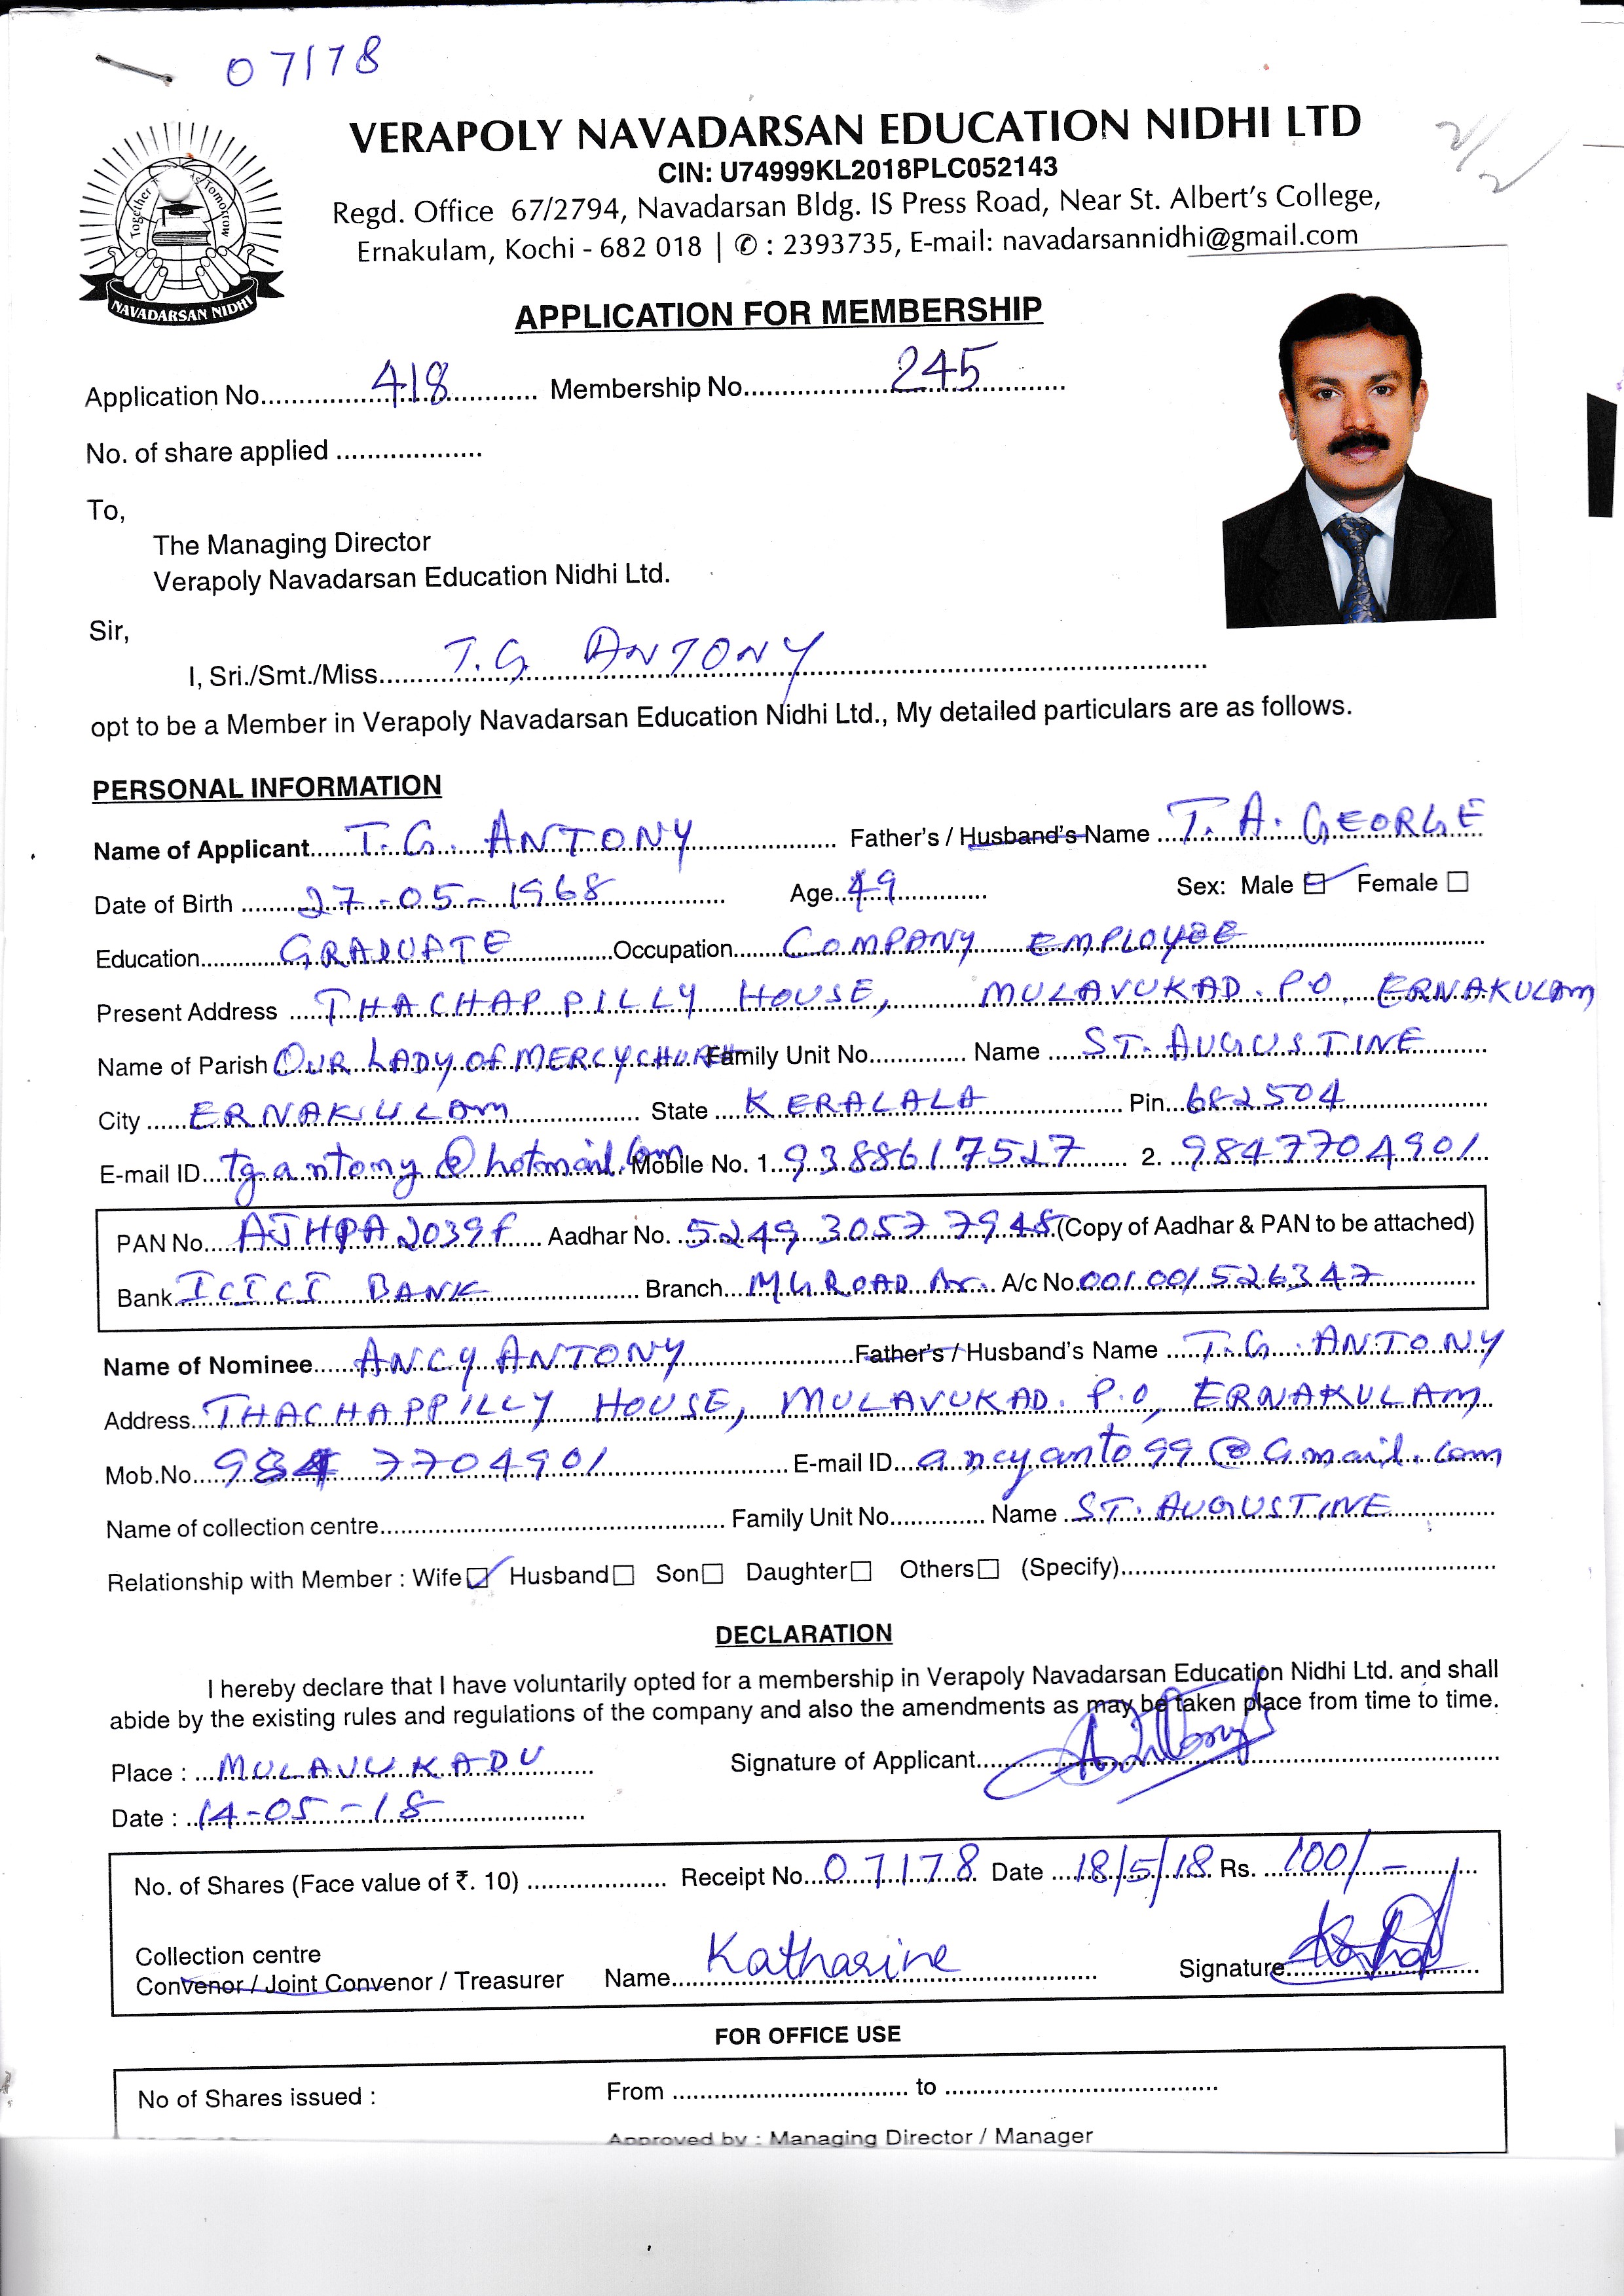 07178
VERAPOLY NAVADARSAN EDUCATION NIDHI LTD
CIN: U74999KL2018PLC052143
Regd. Office 67/2794, Navadarsan Bldg. IS Press Road, Near St. Albert's College,
Ernakulam, Kochi - 682 018 | ✆ : 2393735, E-mail: navadarsannidhi@gmail.com
Together Tomorrow
NAVADARSAN NIDHI
APPLICATION FOR MEMBERSHIP
Application No. 418 Membership No. 245
No. of share applied
To,
The Managing Director
Verapoly Navadarsan Education Nidhi Ltd.
Sir,
I, Sri./Smt./Miss. T.G ANTONY
opt to be a Member in Verapoly Navadarsan Education Nidhi Ltd., My detailed particulars are as follows.
PERSONAL INFORMATION
Name of Applicant T.G. ANTONY Father's / Husband's Name T. A. GEORGE
Date of Birth 27-05-1968 Age 49 Sex: Male ☑ Female ☐
Education GRADUATE Occupation COMPANY EMPLOYEE
Present Address THACHAPPILLY HOUSE, MULAVUKAD. P.O, ERNAKULAM
Name of Parish OUR LADY OF MERCY CHURCH Family Unit No. Name ST. AUGUSTINE
City ERNAKULAM State KERALALA Pin 682504
E-mail ID tgantony@hotmail.com Mobile No. 1. 9388617527 2. 9847704901
PAN No. AJHPA2039f Aadhar No. 5249 3057 7948 (Copy of Aadhar & PAN to be attached)
Bank ICICI BANK Branch MG ROAD A/c No. 001001526347
Name of Nominee ANCY ANTONY Father's / Husband's Name T.G. ANTONY
Address THACHAPPILLY HOUSE, MULAVUKAD. P.O, ERNAKULAM
Mob.No. 984 7704901 E-mail ID ancyanto99@Gmail.com
Name of collection centre Family Unit No. Name ST. AUGUSTINE
Relationship with Member : Wife ☑ Husband ☐ Son ☐ Daughter ☐ Others ☐ (Specify)
DECLARATION
I hereby declare that I have voluntarily opted for a membership in Verapoly Navadarsan Education Nidhi Ltd. and shall
abide by the existing rules and regulations of the company and also the amendments as may be taken place from time to time.
Place : MULAVUKADU Signature of Applicant Antony
Date : 14-05-18
No. of Shares (Face value of ₹. 10) Receipt No. 07178 Date 18/5/18 Rs. 100/-
Collection centre
Convenor / Joint Convenor / Treasurer Name Katharine Signature
FOR OFFICE USE
No of Shares issued : From to
Approved by : Managing Director / Manager